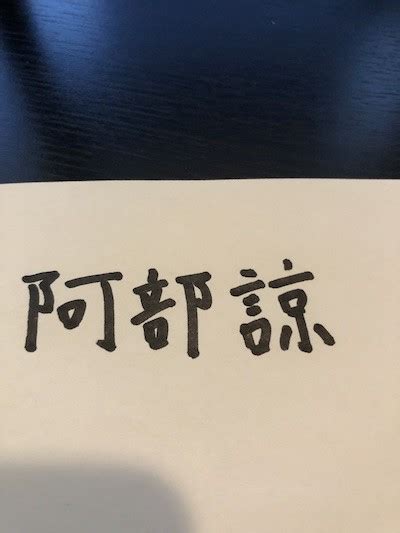 阿部諒